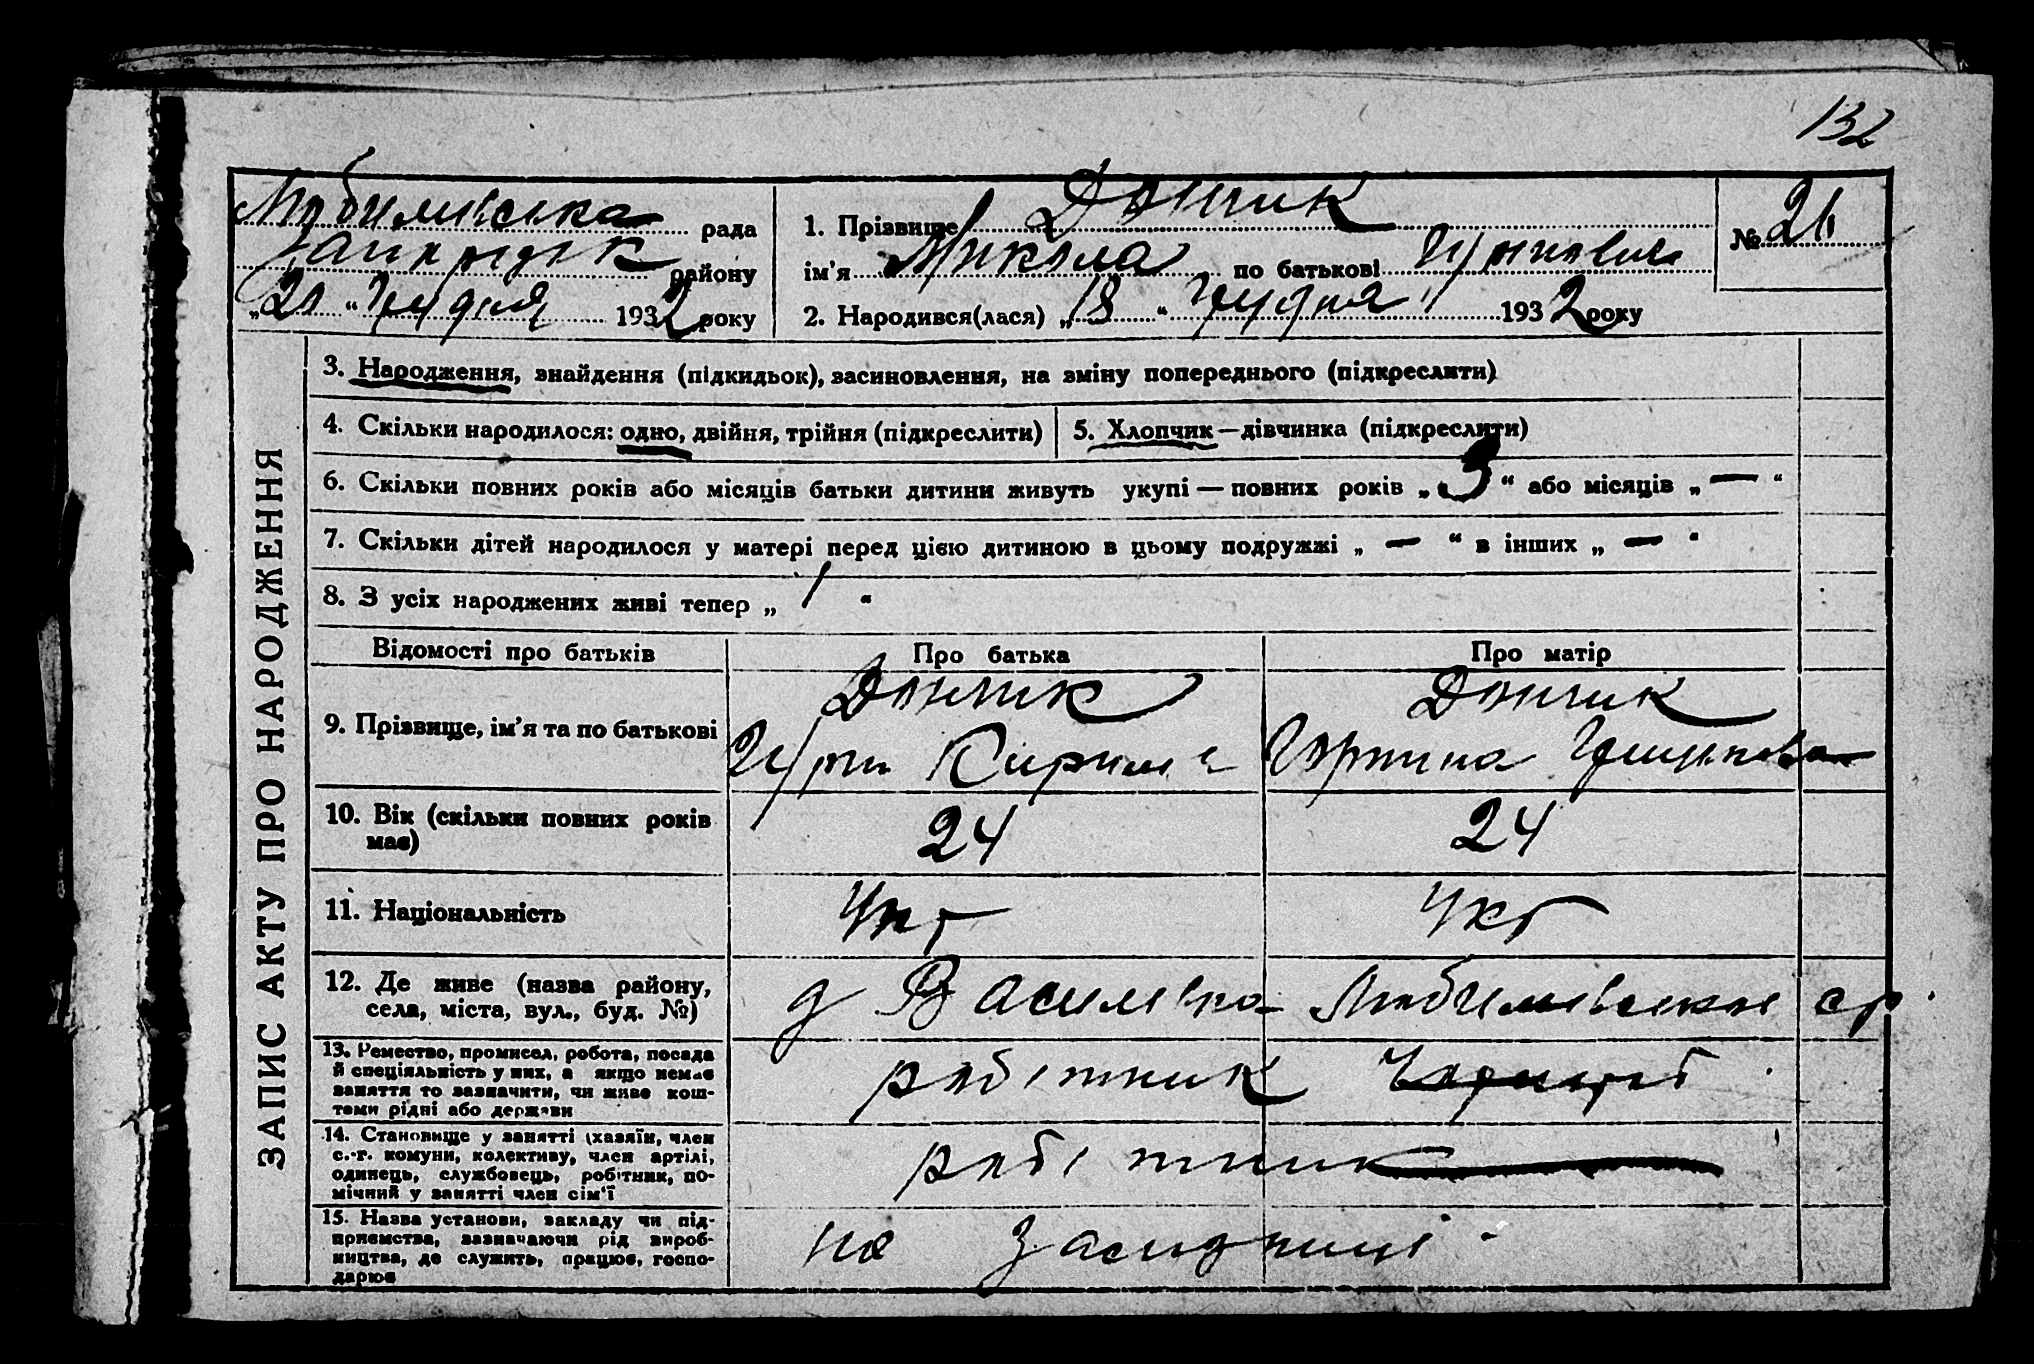 132
Любимівська рада
району
„21“ Грудня 1932 року
1. Прізвище Дончик
ім'я Микола по батькові
2. Народився(лася) „18“ Грудня 1932 року
№ 21
ЗАПИС АКТУ ПРО НАРОДЖЕННЯ
3. Народження, знайдення (підкидьок), засиновлення, на зміну попереднього (підкреслити)
4. Скільки народилося: одно, двійня, трійня (підкреслити)
5. Хлопчик—дівчинка (підкреслити)
6. Скільки повних років або місяців батьки дитини живуть укупі — повних років „3“ або місяців „—“
7. Скільки дітей народилося у матері перед цією дитиною в цьому подружжі „—“ в інших „—“
8. З усіх народжених живі тепер „1“
Відомості про батьків
Про батька
Про матір
9. Прізвище, ім'я та по батькові
Дончик
Дончик
10. Вік (скільки повних років
має)
24
24
11. Національність
Укр
Укр
12. Де живе (назва району,
села, міста, вул., буд. №)
Василівка Любимівської ср.
13. Ремество, промисел, робота, посада
й спеціяльність у них, а якщо немає
заняття то зазначити, чи живе кош-
тами рідні або держави
робітник
14. Становище у занятті (хазяїн, член
с.-г. комуни, колективу, член артілі,
одинець, службовець, робітник, по-
мічний у занятті член сім'ї
робітник
15. Назва установи, закладу чи під-
приємства, зазначаючи рід вироб-
ництва, де служить, працює, госпо-
дарює
на